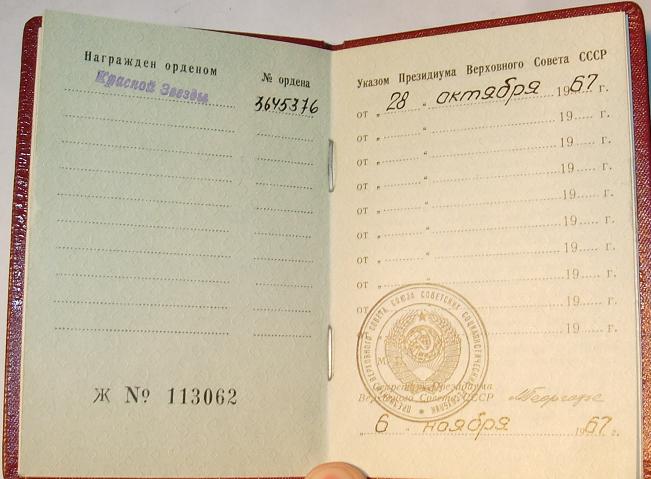 Награжден орденом
№ ордена
Красной Звезды
3645376
Ж № 113062
Указом Президиума Верховного Совета СССР
от „ 28 “ октября 1967 г.
от „ “ 19 г.
от „ “ 19 г.
от „ “ 19 г.
от „ “ 19 г.
от „ “ 19 г.
от „ “ 19 г.
от „ “ 19 г.
от „ 19 г.
19 г.
М
Секретарь Президиума
Верховного Совета СССР
„ 6 “ ноября 1967 г.
ПРЕЗИДИУМ ВЕРХОВНОГО СОВЕТА СОЮЗА СОВЕТСКИХ СОЦИАЛИСТИЧЕСКИХ РЕСПУБЛИК